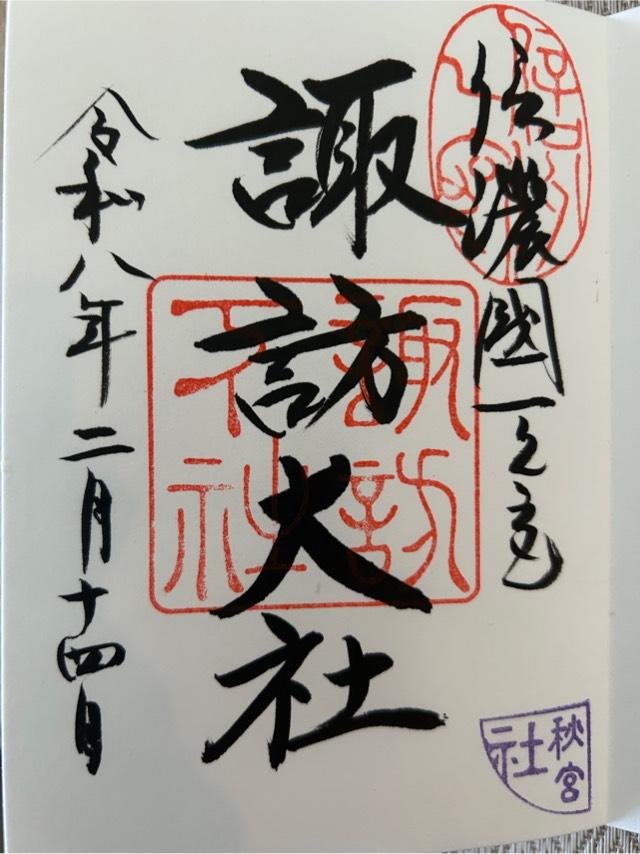 信濃國一之宮
諏訪大社
令和八年二月十四日
諏訪
社
秋宮
社